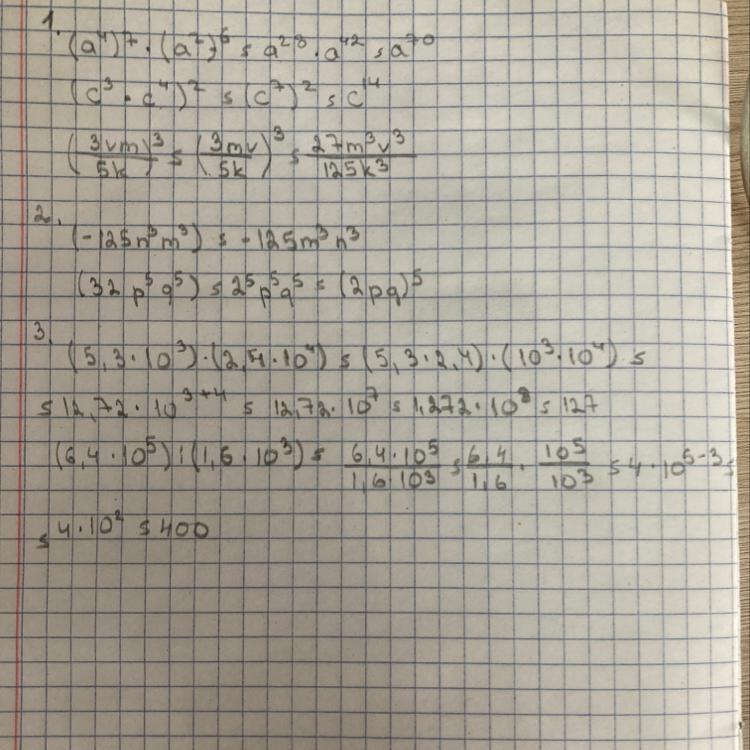 1.
(a⁴)⁷ · (a⁷)⁶ = a²⁸ · a⁴² = a⁷⁰
(c³ · c⁴)² = (c⁷)² = c¹⁴
(3vm/5k)³ = (3mv/5k)³ = 27m³v³/125k³
2.
(-125n³m³) = -125m³n³
(32p⁵q⁵) = 2⁵p⁵q⁵ = (2pq)⁵
3.
(5,3·10³)·(2,4·10⁴) = (5,3·2,4)·(10³·10⁴) =
= 12,72·10³⁺⁴ = 12,72·10⁷ = 1,272·10⁸ = 127
(6,4·10⁵):(1,6·10³) = 6,4·10⁵/1,6·10³ = 6,4/1,6 · 10⁵/10³ = 4·10⁵⁻³ =
= 4·10² = 400